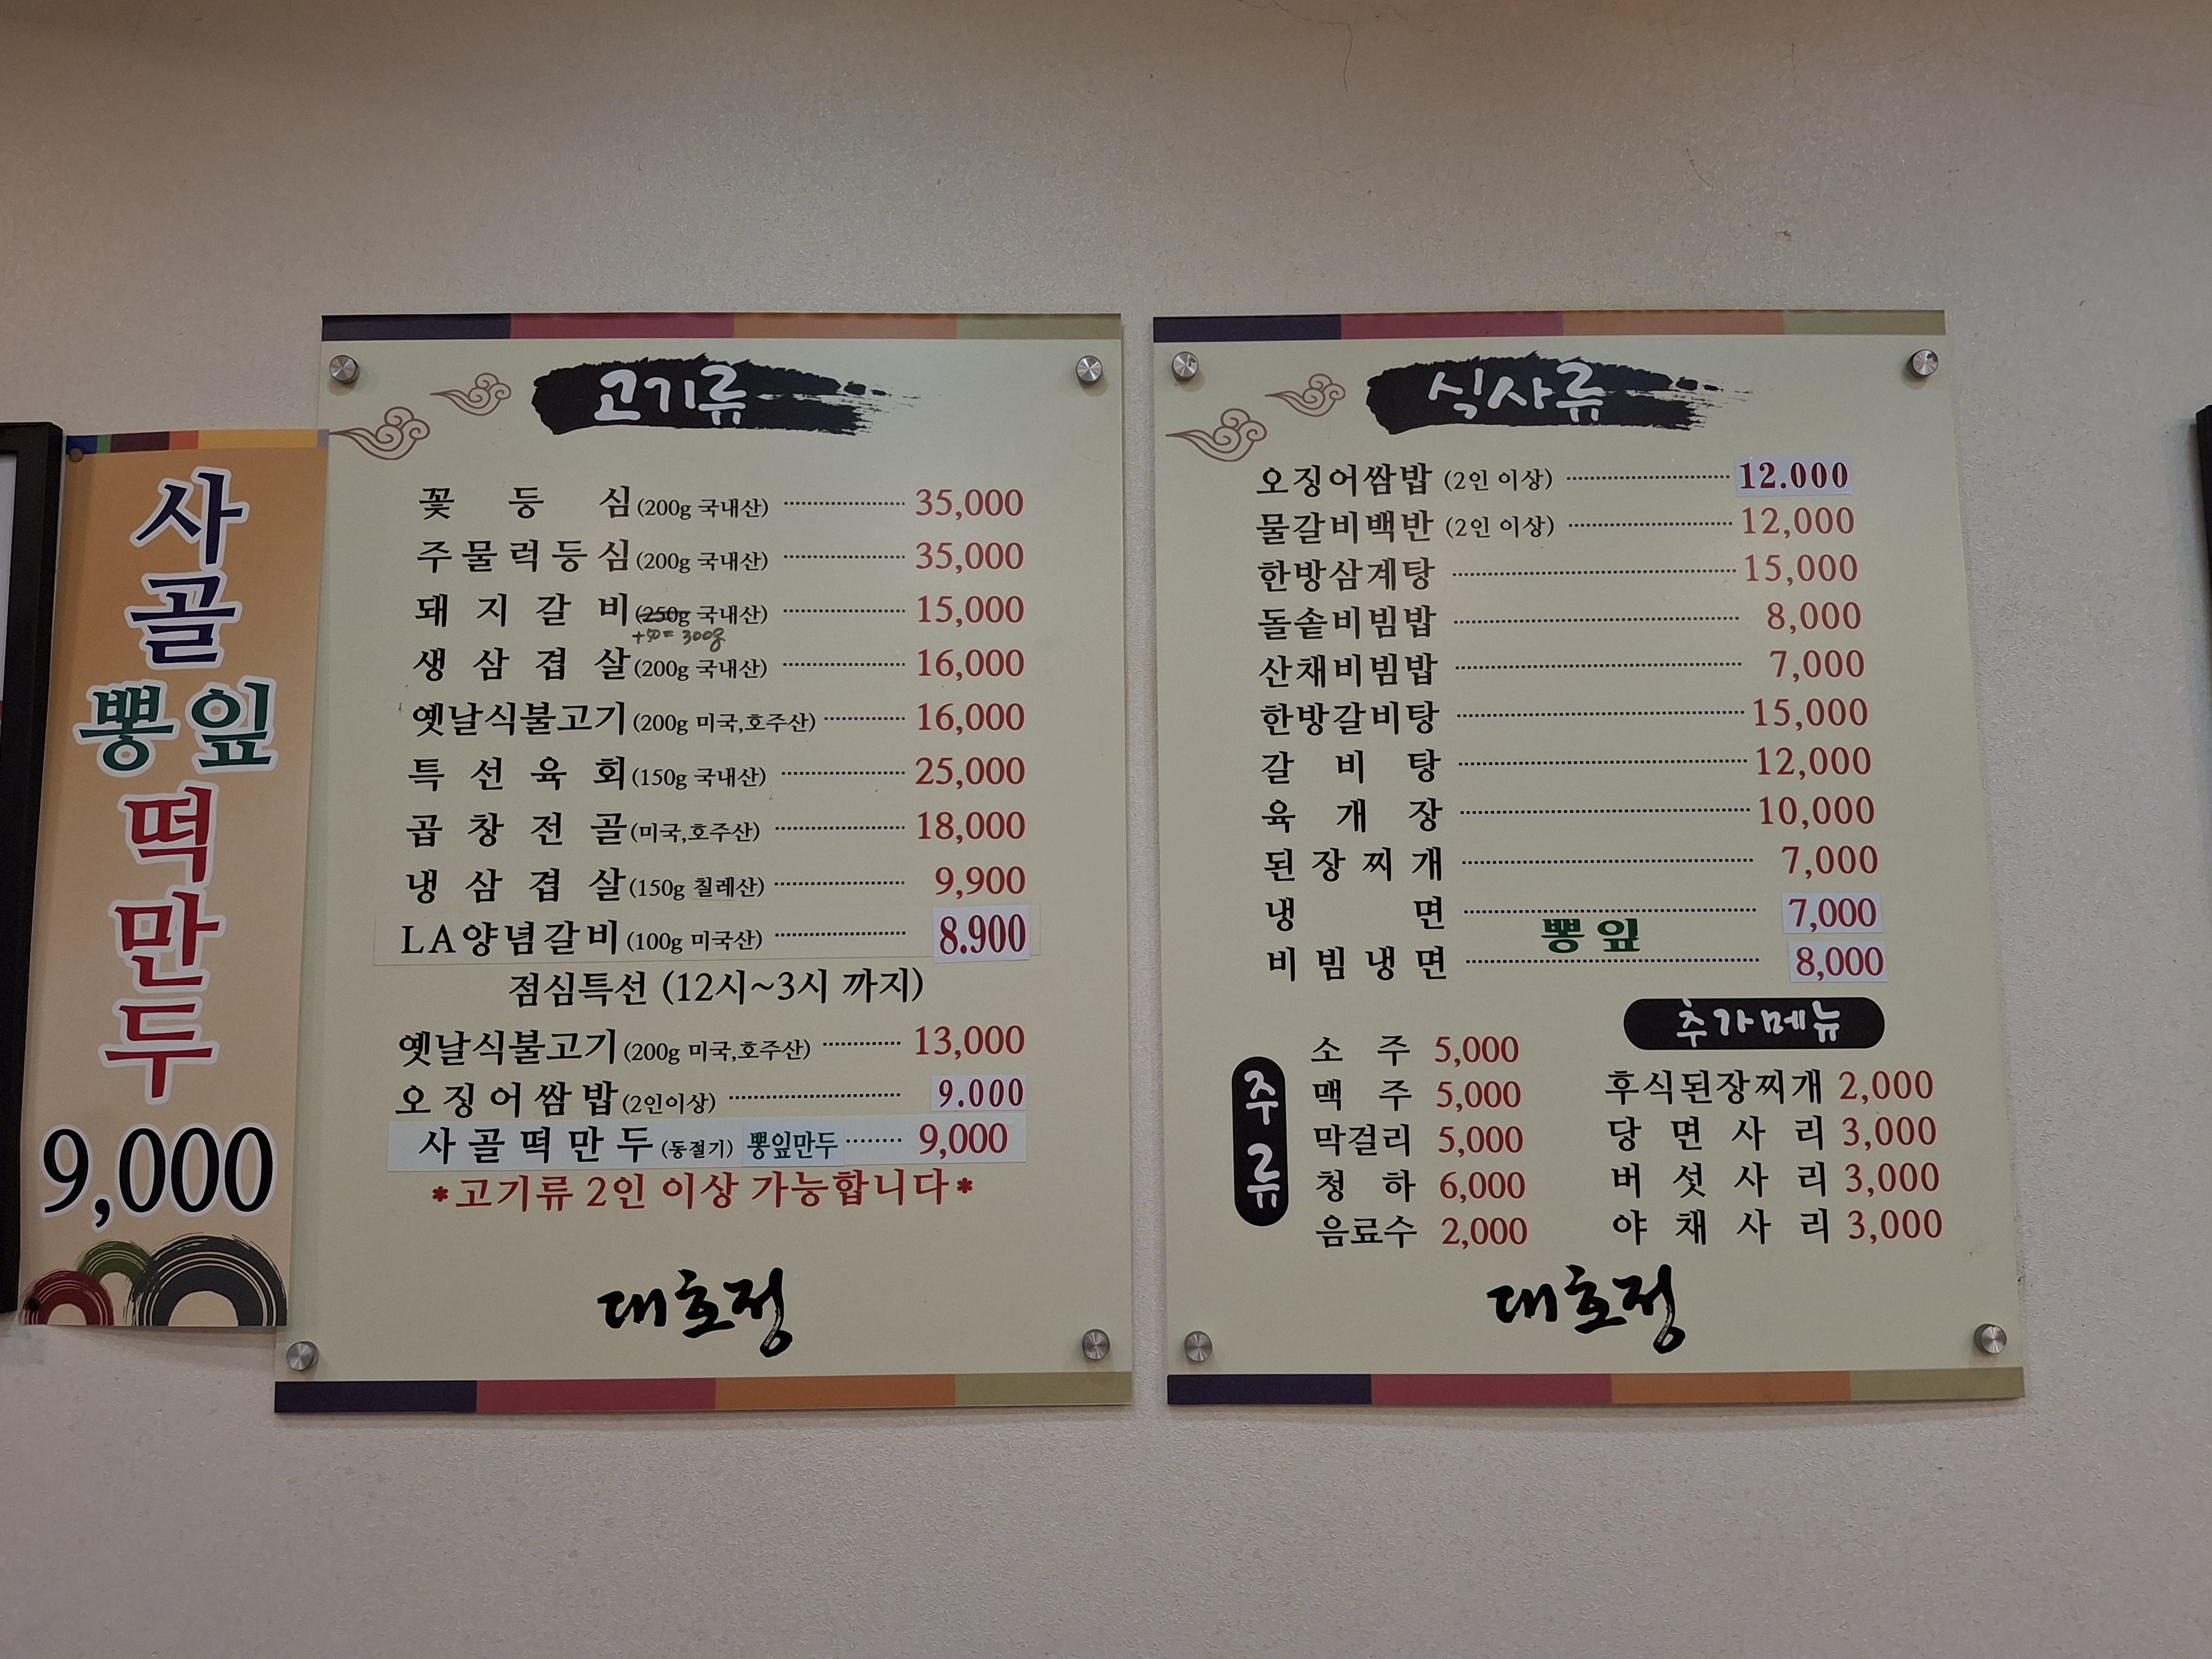 사
골
뽕잎
떡
만
두
9,000
고기류
꽃등심(200g 국내산) 35,000
주물럭등심(200g 국내산) 35,000
돼지갈비(250g 국내산) 15,000
+50= 300g
생삼겹살(200g 국내산) 16,000
옛날식불고기(200g 미국,호주산) 16,000
특선육회(150g 국내산) 25,000
곱창전골(미국,호주산) 18,000
냉삼겹살(150g 칠레산) 9,900
LA양념갈비(100g 미국산) 8.900
점심특선 (12시~3시 까지)
옛날식불고기(200g 미국,호주산) 13,000
오징어쌈밥(2인이상) 9.000
사골떡만두(동절기) 뽕잎만두 9,000
*고기류 2인 이상 가능합니다*
대호정
식사류
오징어쌈밥 (2인 이상) 12.000
물갈비백반 (2인 이상) 12,000
한방삼계탕 15,000
돌솥비빔밥 8,000
산채비빔밥 7,000
한방갈비탕 15,000
갈비탕 12,000
육개장 10,000
된장찌개 7,000
냉면 7,000
뽕잎
비빔냉면 8,000
주류
소주 5,000
맥주 5,000
막걸리 5,000
청하 6,000
음료수 2,000
추가메뉴
후식된장찌개 2,000
당면사리 3,000
버섯사리 3,000
야채사리 3,000
대호정